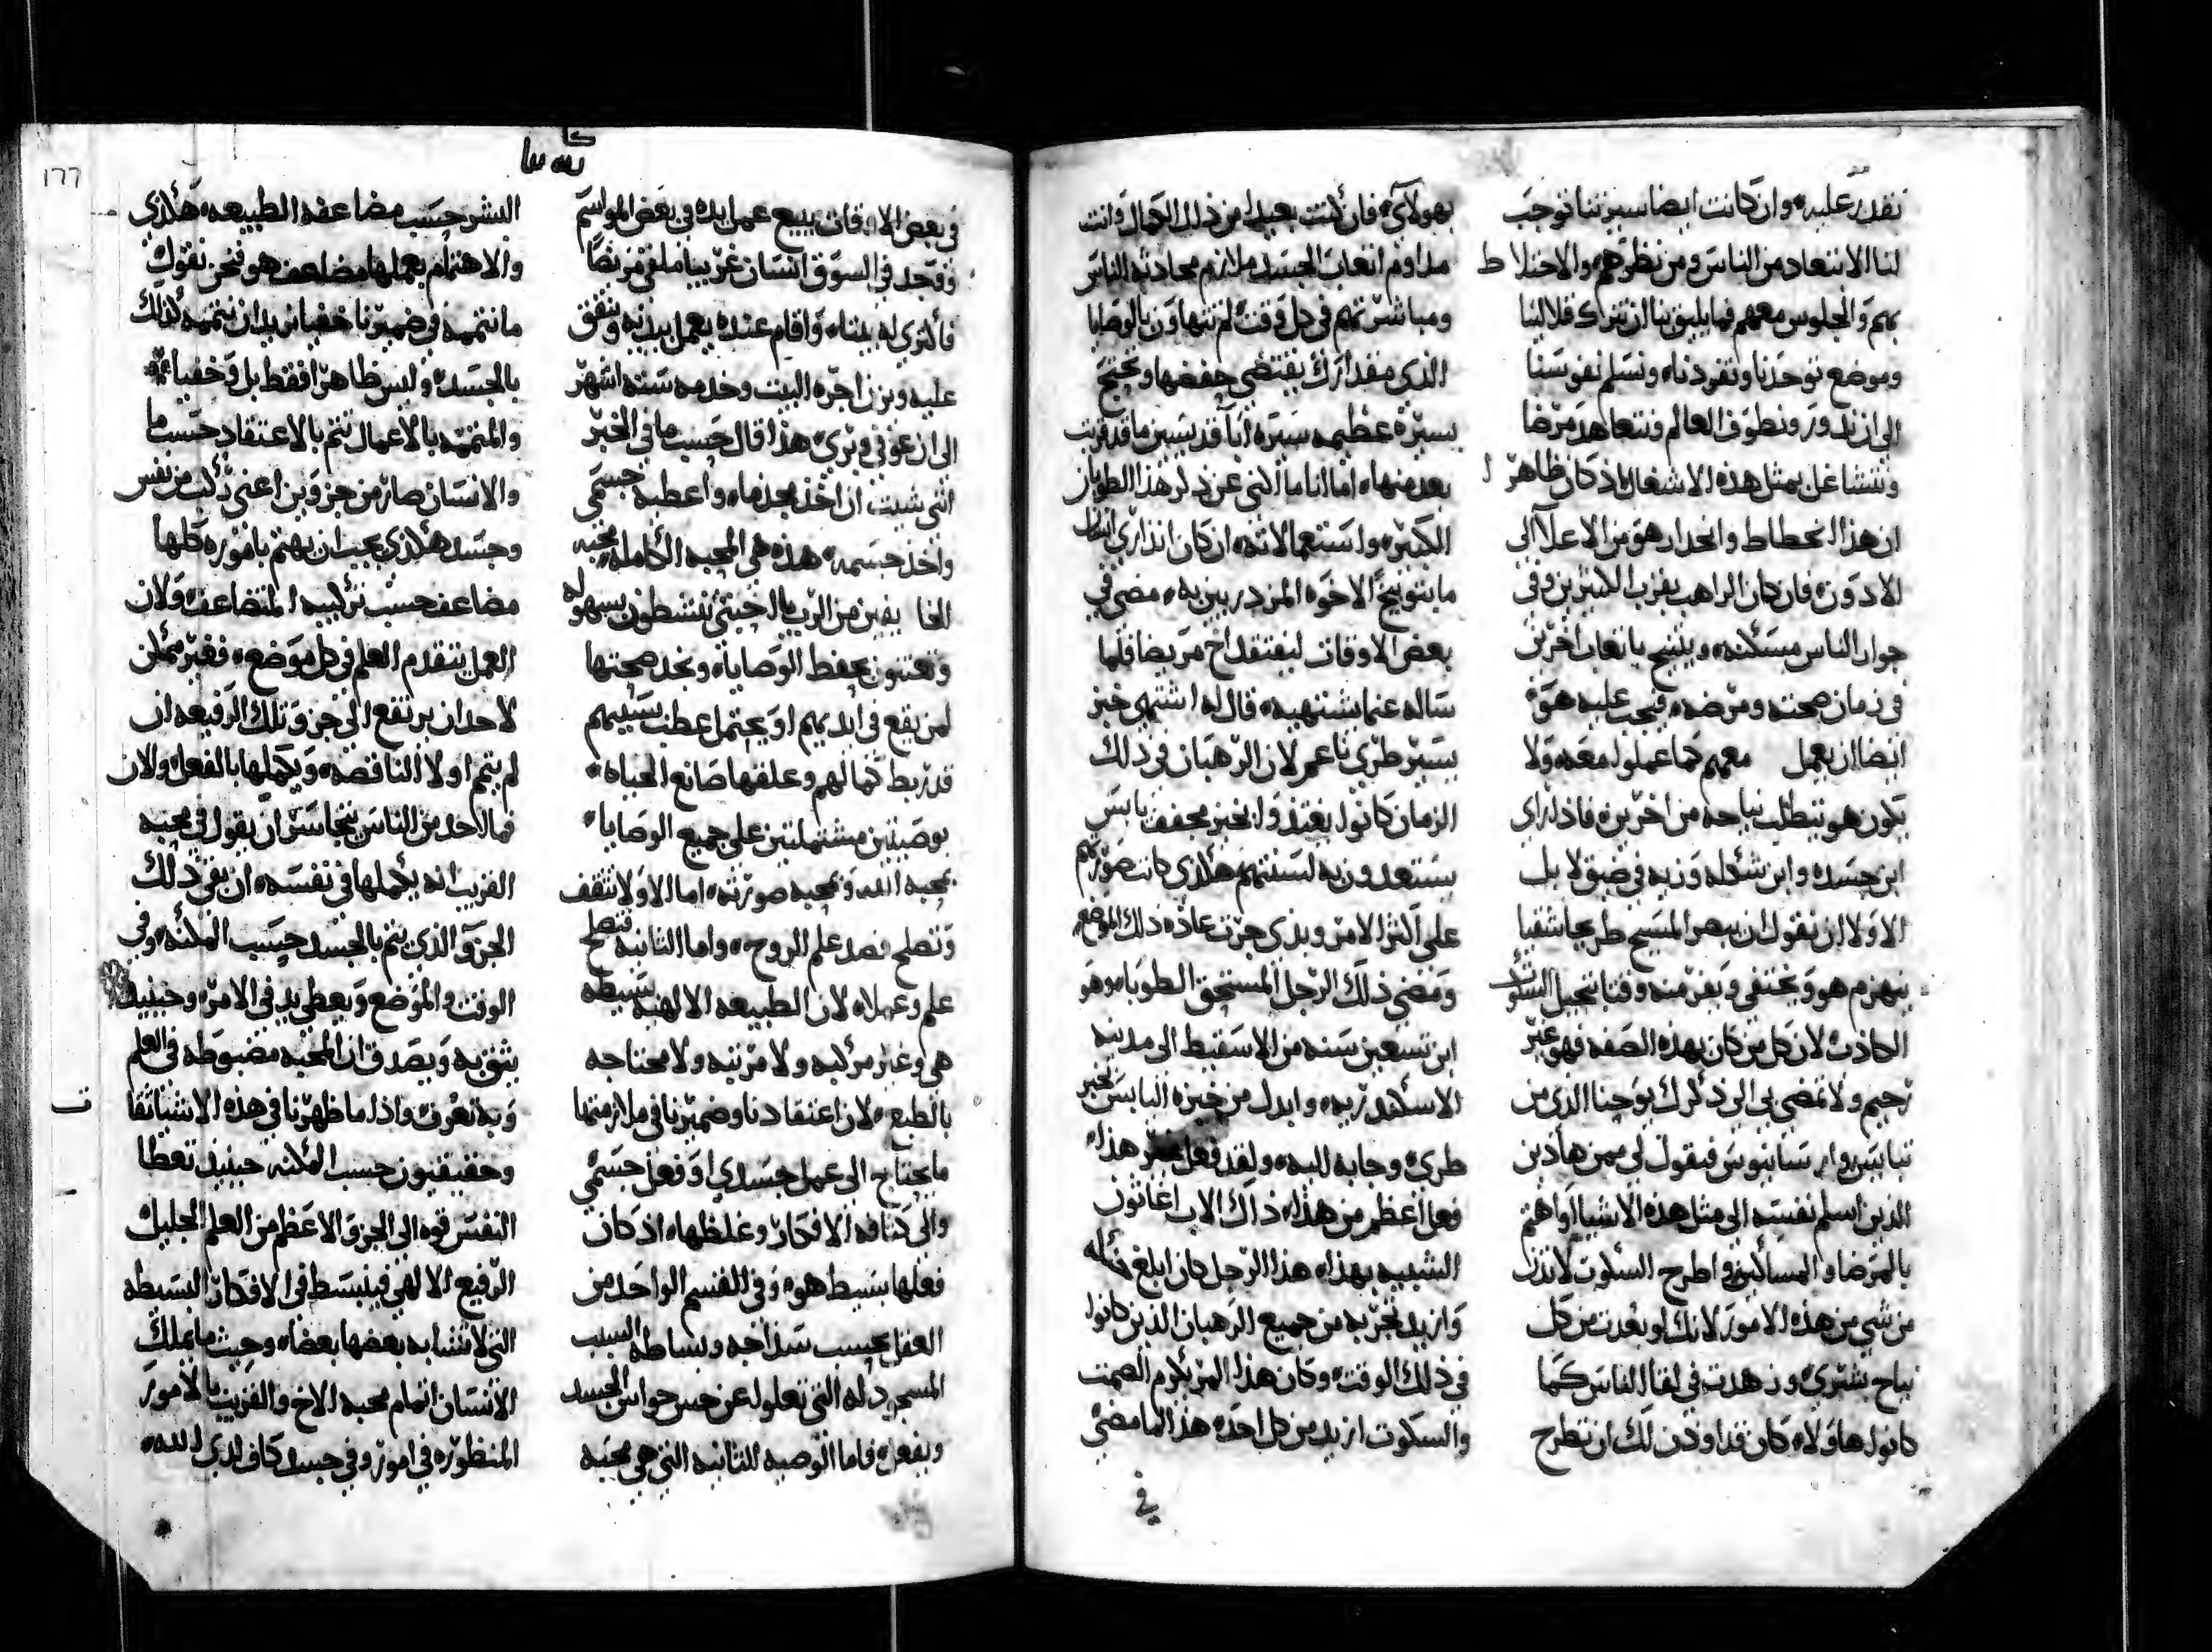 نقدر عليه وان كانت ايضا سيرتنا توجب
لنا الابتعاد من الناس ومن نظرهم والاختلاط
بهم والجلوس معهم فما يليق بنا ان نترك قلالينا
وموضع توحدنا وتفردنا ونسلم نفوسنا
الى ان ندور ونطوف العالم ونتعاهد مرضا
ونتشاغل بمثل هذه الاشغال اذ كان ظاهرا
ان هذا انحطاط وانحدار هو من الاعلا الى
الادون فان كان الراهب بقرب الكثيرين وفي
جوار الناس مسكنه وينتيح باتعاب اخرين
في زمان صحته ومرضه فيجب عليه هو
ايضا ان يعمل معهم كما عملوا معه ولا
يكون هو يتطلب نياحه من اخرين فاذا راى
ابن جسده وابن شكله وزيه في ضيق لا بل
الاولا ان نقول ان يبصر المسيح طريحا شقيا
ينهزم هو ويختفي ويفر منه وقتا بتحيل السكوت
الكاذب لان كل من كان بهذه الصفه فهو غير
رحيم ولا تمضي بي الى ذكرك يوحنا الذي من
تبايس وارسانيوس فيقول لي ممن هاذين
الذين اسلم نفسه الى مثل هذه الاشيا او اهتم
بالمرضا والمساكين واطرح السكوت لا تدن
من شي من هذه الامور لانك لو بعدت من كل
نياح بشري وزهدت في لقا الناس كما
كانوا هاولاء كان قد اوذن لك ان تطرح
بهولاي فان كنت بعيدا من ذلك الكمال وانت
مداوم اتعاب الجسد ملازم محادثة الناس
ومباشرتهم في كل وقت لم تتهاون بالوصايا
الذي مقدارك يقتضي حفضها وتحتج
بسيرة عظيمه سيرة ابآ قديسين ما قد قربت
بعد منها اما انا ما انثني عن ذكر هذا الطوبان
الكبير واستعمالاته ان كان انذاري انذار
ما بتوبيخ الاخوه المزدريين به مضى في
بعض الاوقات ليفتقد اخ مريضا فلما
ساله عما يشتهيه قال له اشتهي خبز
يسير طري ناعم لان الرهبان في ذلك
الزمان كانوا يغتدوا بخبز مجفف يابس
يستعدون به لسنتهم هكذي كانت صورتهم
على اكثر الامر وبذي جرت عادة ذلك الموضع
ومضى ذلك الرجل المستحق الطوبا وهو
ابن تسعين سنه من الاسقيط الى مدينه
الاسكندريه وابدل من خبزه اليابس بخبز
طري وجابه اليه ولقد فعل هذا
فعل اعظم من هذا ذاك الاب اغاثون
الشبيه بهذا هذا الرجل كان ابلغ
وازيد تجربه من جميع الرهبان الذين كانوا
في ذلك الوقت وكان هذا المر يكرم الصمت
والسكوت ازيد من كل احد هذا لما مضى
في
١٦٦
في بعض الاوقات يبيع عمل يده في بعض المواسم
فوجد في السوق انسان غريبا ملقى مريضا
فاكترى له بيتا واقام عنده يعمل بيديه وينفق
عليه ويزن اجرة البيت وخدمه ستة اشهر
الى ان عوفي وبري هذا قال حسب ما في الخبر
انني شيت ان اخذ مجذما واعطيه جسمي
واخذ جسمه هذه هي المحبه الكامله محبه
الخايفين من الرب يا احبتي ينشطون بسهوله
ويعتنون بحفظ الوصايا ونجد صحتها
لمن يقع في ايديهم او يحتمل عطب بسببهم
قد ربط كمالهم وعلقها صانع الحياة
بوصيتين مشتملتين على جميع الوصايا
بمحبة الله وبمحبه صورته اما الاولا تثقف
وتصلح قصد علم الروح واما الثانيه فتصلح
علم وعمل لان الطبيعه الالهيه بسيطه
هي وغير مركبه ولا مرتبه ولا محتاجه
بالطبع لان اعتقادنا وضميرنا في ملازمتها
ما يحتاج الى عمل جسدي او فعل جسمي
والى كثافة الافكار وغلظها اذ كان
فعلها بسيط هو وفي القسم الواحد من
العقل بحسب سذاجه وبساطة السبب
المسجود له التي تعلوا عن حس حواس الجسد
وبفعل فاما الوصيه الثانيه التي هي محبه
البشر حسب مضاعفة الطبيعه هكذي
والاهتمام بعملها مضاعف هو فنحن نقول
ما نتممه في ضميرنا خفيا نريد ان نتممه كذلك
بالجسد وليس ظاهرا فقط بل وخفيا
والمتممه بالاعمال تتم بالاعتقاد حسب ما
والانسان صار من جزوين اعني ركب من نفس
وجسد هكذي يجب ان يهتم باموره كلها
مضاعف حسب تركيبه المتضاعف ولان
العمل يتقدم العلم في كل موضع فغير ممكن
لاحد ان يرتفع الى جزو تلك الرفيعه ان
لم يتمم اولا الناقصه ويكملها بالفعل ولان
فما لاحد من الناس يتجاسر ان يقول في محبه
القريب انه يكملها في نفسه ان بقي ذلك
الجزو الذي يتم بالجسد حسب المكنه وفي
الوقت والموضع ويعطي يد في الامر وحينيذ
يثق به ويصدق ان المحبه مضبوطه في العلم
وبه تعرف واذا ما ظهرنا في هذه الاشيا ثقا
وحقيقيون حسب المكنه حينيذ تعطا
النفس قوه الى الجزو الاعظم من العلم الجليل
الرفيع الالهي فينبسط في الافكار البسيطه
التي لا تتشابه بعضها بعضا وحيث ما يملك
الانسان اتمام محبه الاخ والقريب بالامور
المنظوره في امور وفي جسد كاف لدى الله